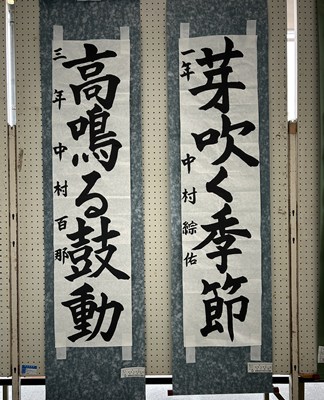 芽吹く季節
一年 中村綜佑
高鳴る鼓動
三年 中村百那